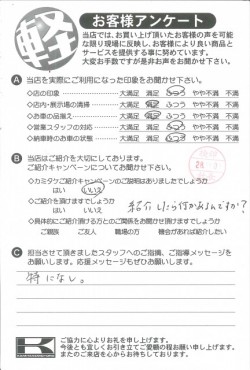 軽
お客様アンケート
当店では、お買い上げ頂いたお客様の声を可能
な限り現場に反映し、お客様により良い商品と
サービスを提供する事に努めています。
大変お手数ですが是非お声をお聞かせ下さい。
A 当店を実際にご利用になった印象をお聞かせ下さい。
◇店の印象 ・・・→ 大満足 満足 ふつう やや不満 不満
◇店内・展示場の清掃 ・・・→ 大満足 満足 ふつう やや不満 不満
◇お車の品揃え ・・・→ 大満足 満足 ふつう やや不満 不満
◇営業スタッフの対応 ・・・→ 大満足 満足 ふつう やや不満 不満
◇納車時のお車の状態 ・・・→ 大満足 満足 ふつう やや不満 不満
B 当店はご紹介を大切にしております。
ご紹介キャンペーンについてお聞かせ下さい。
◇カミタケご紹介キャンペーンのご説明はありましたでしょうか
はい いいえ
◇ご紹介を頂けますでしょうか
はい いいえ
紹介したら何かあるんですか?
◇具体的にご紹介頂ける方とのご関係をお聞かせ頂けますでしょうか
ご親族 ご友人 職場の方 機会があれば紹介したい
C 担当させて頂きましたスタッフへのご指摘、ご指導メッセージを
お願いします。応援メッセージもぜひお願いします。
特になし。
K
ご協力に心よりお礼を申し上げます。
今後とも宜しくお引き立てご愛顧の程お願い申し上げます。
またのご来店を心からお待ちしております。